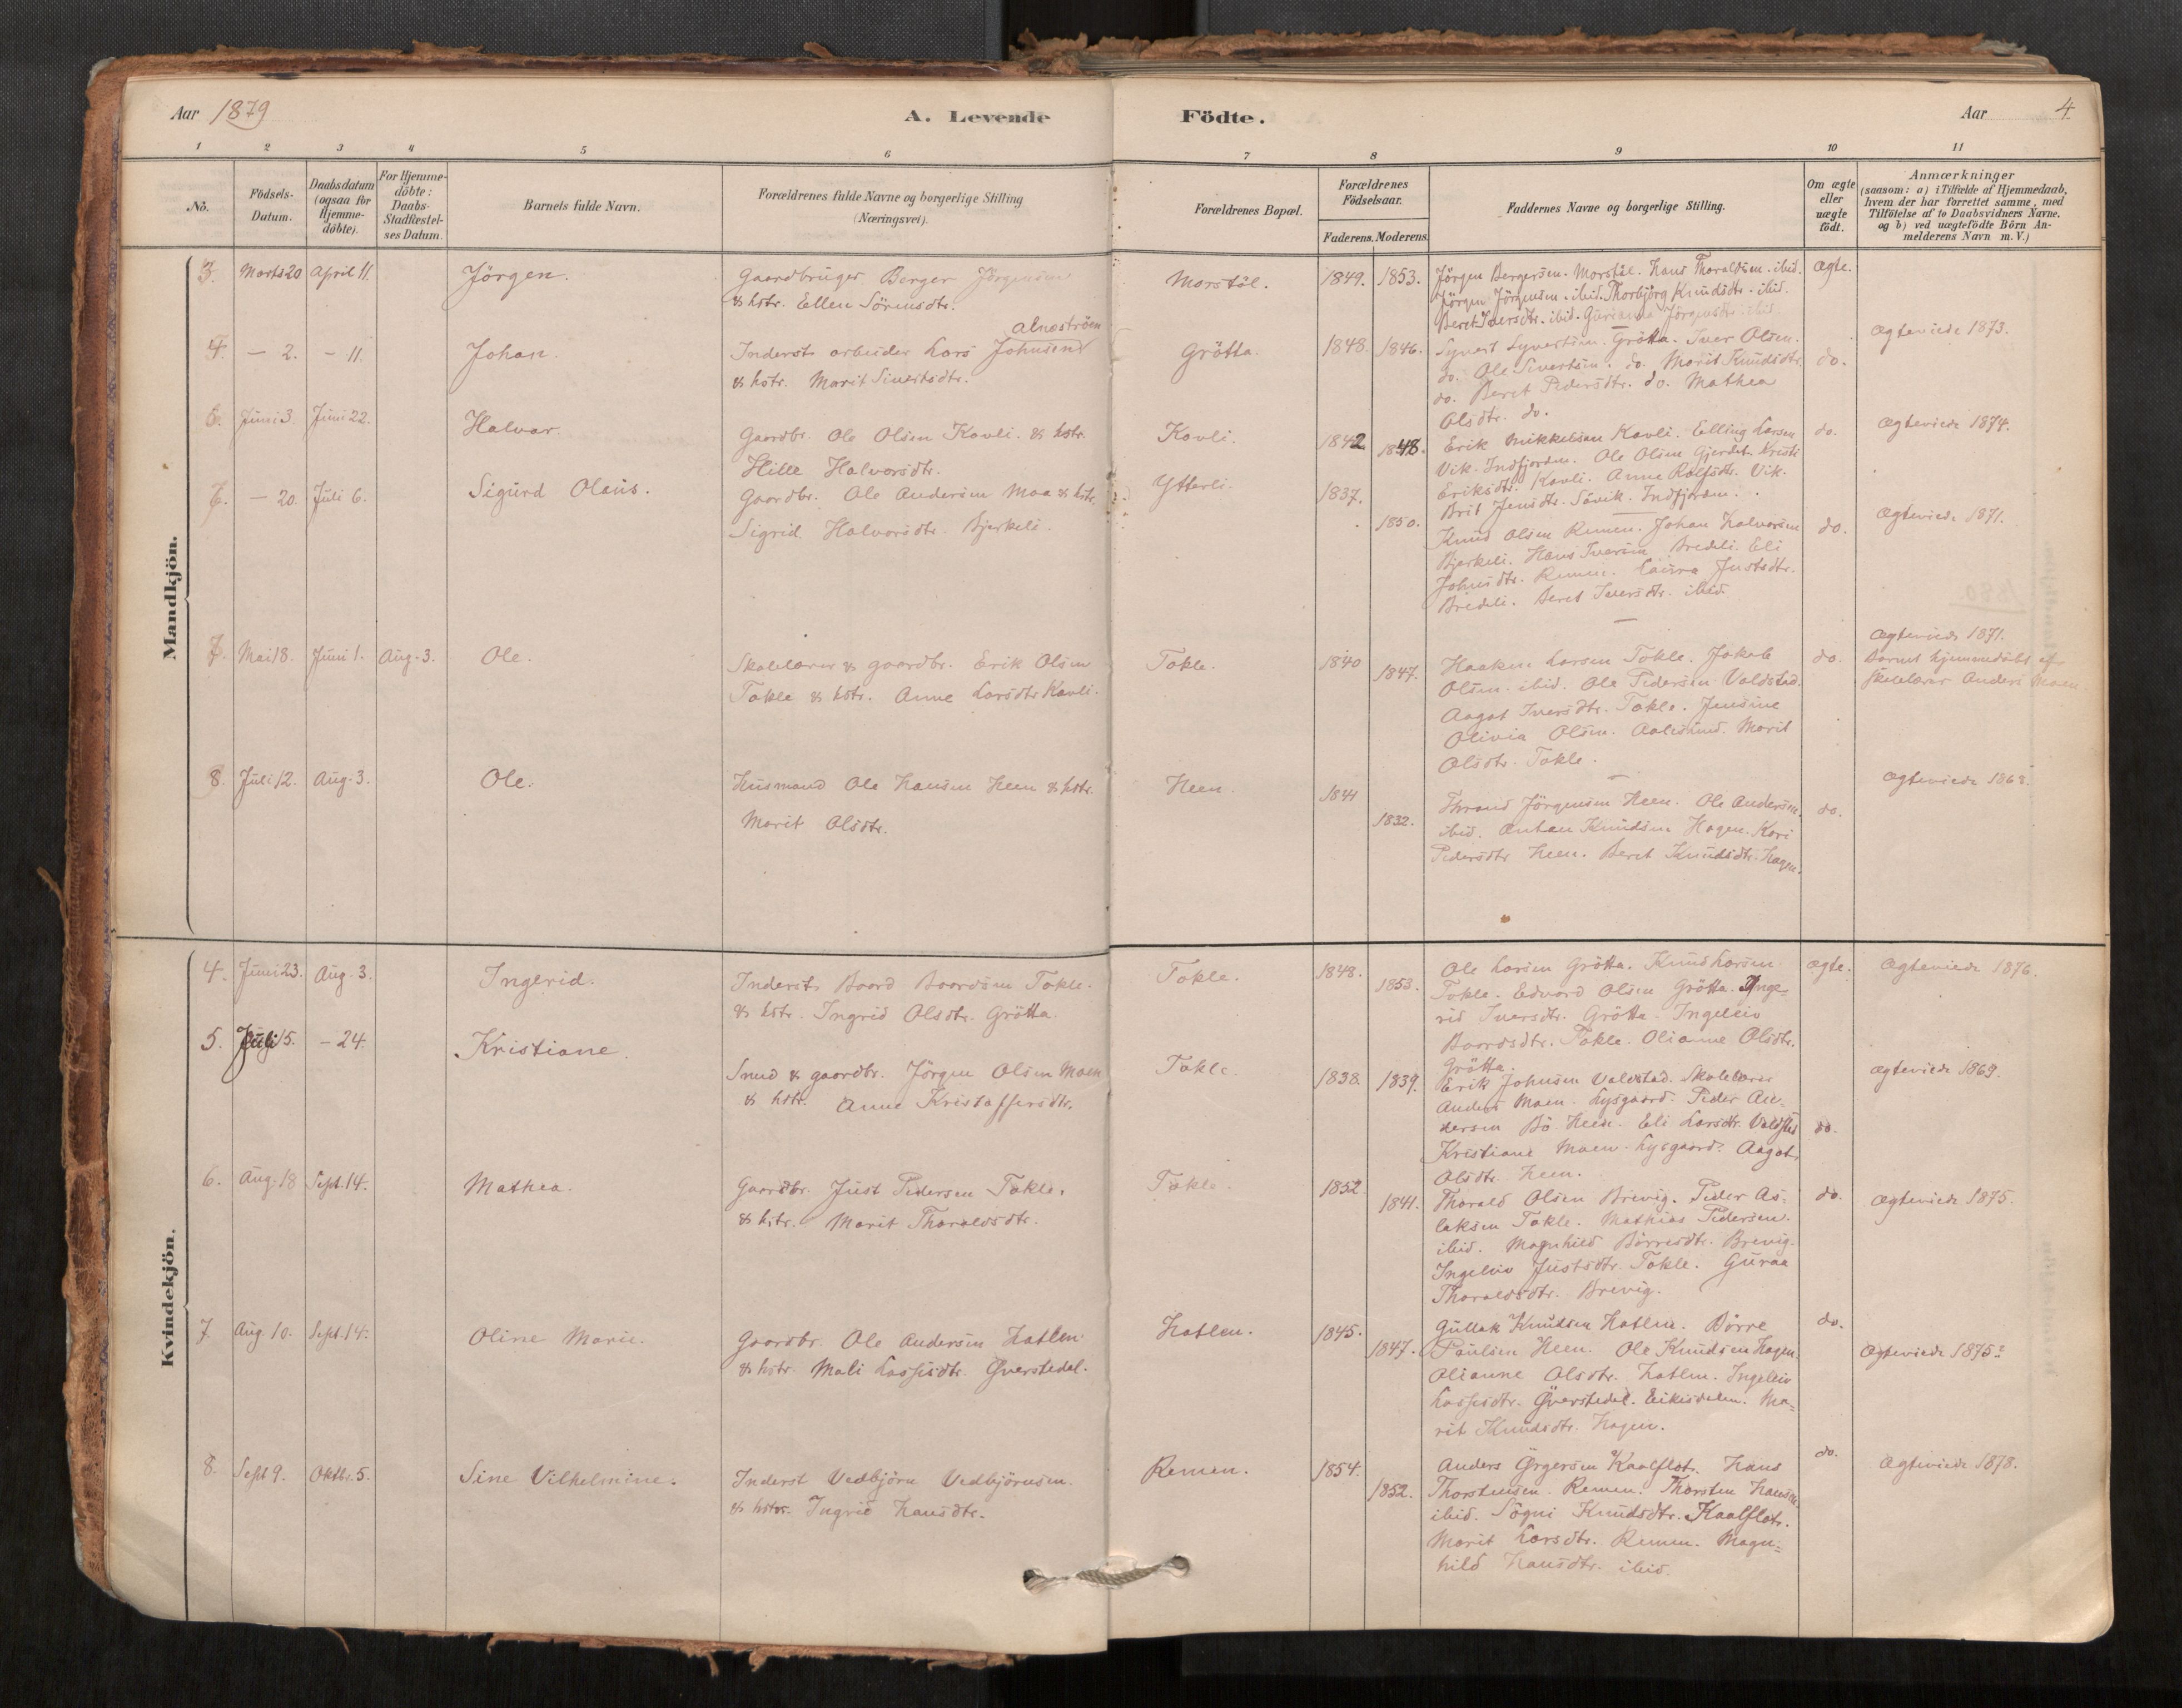 Aar 1879
A. Levende Födte.
Aar 4.
1 2 3 4 5 6 7 8 9 10 11
No.
Födsels-
Datum.
Daabsdatum
(ogsaa for
Hjemme-
döbte).
For Hjemme-
döbte:
Daabs-
Stadfæstel-
ses Datum.
Barnets fulde Navn.
Forældrenes fulde Navne og borgerlige Stilling
(Næringsvei).
Forældrenes Bopæl.
Forældrenes
Födselsaar.
Faderens. Moderens.
Faddernes Navne og borgerlige Stilling.
Om ægte
eller
uægte
födt.
Anmærkninger
(saasom: a) i Tilfælde af Hjemmedaab,
hvem der har forrettet samme, med
Tilföielse af to Daabsvidners Navne.
og b) ved uægtefödte Börn An-
melderens Navn m. V.)
Mandkjön.
3. Marts 20 April 11. Jörgen.
Gaardbruger Berger Jörgensen
& hstr. Ellen Sörensdtr.
Morstöl. 1849. 1853.
Jörgen Bergersen. Morstöl. Hans Tharaldsen. ibid.
Jörgen Jörgensen. ibid. Thorbjörg Knudsdtr. ibid.
Beret Iversdtr. ibid. Jörgensdtr. ibid.
Ægte.
Ægteviede 1873.
4. - 2. - 11. Johan.
Alnoström
Inderst arbeider Lars Johnsen
& hstr. Marit Sivertsdtr.
Grötta. 1848. 1846.
Syvert Syvertsen. Grötta. Iver Olsen.
do. Ole Sivertsen. do. Marit Knudsdtr.
do. Beret Pedersdtr. do. Mathea
Olsdtr. do.
do.
Ægteviede 1874.
6. Juni 3. Juni 22. Halvar.
Gaardbr. Ole Olsen Kavli. & hstr.
Hille Halvorsdtr.
Kavli. 1842 1848.
Erik Mikkelsen Kavli. Elling Larsen
Vik. Indfjorden. Ole Olsen Gjerdet. Kristi
Eriksdtr. Kavli. Anne Rolfsdtr. Vik.
Brit Jensdtr. Sövik. Indfjorden.
do.
Ægteviede 1871.
6. - 20. Juli 6. Sigurd Olaus.
Gaardbr. Ole Andersen Moa & hstr.
Sigrid Halvorsdtr. Bjerkeli.
Ytterli. 1837. 1850.
Knud Olsen Remen. Johan Halvorsen
Bjerkeli. Hans Iversen Bredeli. Eli
Johnsdtr. Remen. Laura Justsdtr.
Bredeli. Beret Iversdtr. ibid.
do.
7. Mai 18. Juni 1. Aug. 3. Ole.
Skolelærer & gaardbr. Erik Olsen
Tokle & hstr. Anne Larsdtr Kavli.
Tokle. 1840 1847.
Haaken Larsen Tokle. Jakob
Olsen. ibid. Ole Pedersen Voldstad.
Aagot Iversdtr. Tokle. Jensine
Olivia Olsen. Aalesund. Marit
Olsdtr. Tokle.
do.
Ægteviede 1871.
Barnet hjemmedöbt af
skolelærer Anders Moen.
8. Juli 12. Aug. 3. Ole.
Husmand Ole Hansen Heen & hstr.
Marit Olsdtr.
Heen. 1841 1832.
Thrand Jörgensen Heen. Ole Andersen.
ibid. Anton Knudsen Hagen. Kari
Pedersdtr Heen. Beret Knudsdtr. Hagen.
do.
Ægteviede 1868.
Kvindekjön.
4. Juni 23. Aug. 3. Ingerid.
Inderst Baard Baardsen Tokle.
& hstr. Ingrid Olsdtr. Grötta.
Tokle. 1848. 1853.
Ole Larsen Grötta. Knud Larsen
Tokle. Edvard Olsen Grötta. Inge-
rid Iversdtr. Grötta. Ingeleiv
Baardsdtr. Tokle. Olianne Olsdtr.
Grötta.
Ægte.
Ægteviede 1876.
5. Juli 15. - 24. Kristiane.
Smed & gaardbr. Jörgen Olsen Moen
& hstr. Anne Kristoffersdtr.
Tokle. 1838. 1839.
Erik Johnsen Voldstad. Skolelærer
Anders Moen. Lysgaard. Peder An-
dersen Bö. Heen. Eli Larsdtr. Voldstad
Kristiane Moen. Lysgaard. Aagot
Olsdtr. Heen.
do.
Ægteviede 1869.
6. Aug. 18 Sept. 14. Mathea.
Gaardbr. Just Pedersen Tokle.
& hstr. Marit Tharaldsdtr.
Tokle. 1852 1841.
Tharald Olsen Brevig. Peder As-
laksen Tokle. Mathias Pedersen.
ibid. Magnhild Börresdtr. Brevig.
Ingeleiv Justsdtr. Tokle. Guraa
Tharaldsdtr. Brevig.
do.
Ægteviede 1875.
7. Aug. 10. Sept. 14. Oline Marie.
Gaardbr. Ole Andersen Hatlen
& hstr. Mali Lassesdtr. Överstedal.
Hatlen. 1845. 1847.
Gullak Knudsen Hatlen. Börre
Paulsen Heen. Ole Knudsen Hagen.
Olianne Olsdtr. Hatlen. Ingeleiv
Lassesdtr. Överstedal. Eikisdalen. Ma-
rit Knudsdtr. Hagen.
do.
Ægteviede 1875.
8. Sept 9. Oktbr. 5. Sine Vilhelmine.
Inderst Vedbjörn Vedbjörnsen.
& hstr. Ingrid Hansdtr.
Remen. 1854. 1852.
Anders Örgersen Kaalflot. Hans
Thorstensen. Remen. Thorsten Hansen.
ibid. Sögni Knudsdtr. Kaalflot.
Marit Larsdtr. Remen. Magn-
hild Hansdtr. ibid.
do.
Ægteviede 1878.